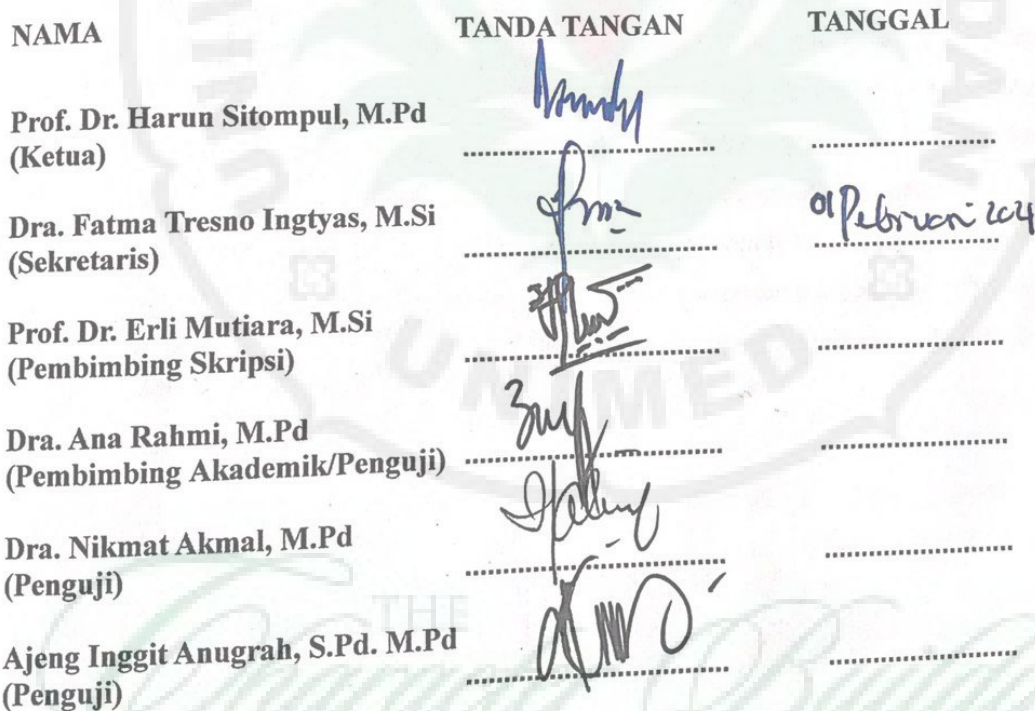 NAMA TANDA TANGAN TANGGAL
Prof. Dr. Harun Sitompul, M.Pd
(Ketua)
Dra. Fatma Tresno Ingtyas, M.Si 01 Pebruari
(Sekretaris)
Prof. Dr. Erli Mutiara, M.Si
(Pembimbing Skripsi)
Dra. Ana Rahmi, M.Pd
(Pembimbing Akademik/Penguji)
Dra. Nikmat Akmal, M.Pd
(Penguji)
Ajeng Inggit Anugrah, S.Pd. M.Pd
(Penguji)
UNIMED
THE